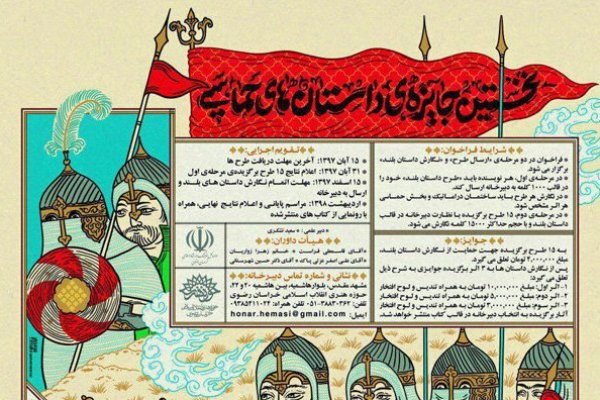 نخستین جایزه‌ی داستان‌های حماسی
❖❖ شرایط فراخوان: ❖❖
* فراخوان در دو مرحله‌ی «ارسال طرح» و «نگارش داستان بلند» برگزار می شود.
* در مرحله‌ی اول، هر نویسنده باید «طرح داستان بلند» خود را
در قالب ۱۰۰۰ کلمه به دبیرخانه ارسال کند.
* در نگارش هر طرح باید ساختمان دراماتیک و بخش حماسی
اثر مشخص شود.
* در مرحله‌ی دوم، ۱۵ طرح برگزیده با نظارت دبیرخانه در قالب
داستان بلند و با حجم حداکثر ۱۵۰۰۰ کلمه نگارش می شود.
❖❖ جوایز: ❖❖
* به ۱۵ طرح برگزیده جهت حمایت از نگارش داستان بلند،
مبلغ ۲,۰۰۰,۰۰۰ تومان تعلق می گیرد.
* پس از نگارش داستان ها به ۳ اثر برگزیده جوایزی به شرح ذیل
تعلق می گیرد:
۱- اثر اول: مبلغ ۱۰,۰۰۰,۰۰۰ تومان به همراه تندیس و لوح افتخار
۲- اثر دوم: مبلغ ۵,۰۰۰,۰۰۰ تومان به همراه تندیس و لوح افتخار
۳- اثر سوم: مبلغ ۳,۰۰۰,۰۰۰ تومان به همراه تندیس و لوح افتخار
آثار برگزیده به انتخاب دبیرخانه در قالب کتاب منتشر خواهد شد.
❖❖ تقویم اجرایی: ❖❖
* ۱۵ آبان ۱۳۹۷: آخرین مهلت دریافت طرح ها
* ۳۱ آبان ۱۳۹۷: اعلام نتایج ۱۵ طرح برگزیده‌ی مرحله‌ی اول
* ۱۵ اسفند ۱۳۹۷: مهلت اتمام نگارش داستان های بلند و
ارسال به دبیرخانه
* اردیبهشت ۱۳۹۸: مراسم پایانی و اعلام نتایج نهایی، همراه
با رونمایی از کتاب های منتشرشده
دبیر علمی: * سعید تشکری
❖❖ هیات داوران: ❖❖
❖❖ نشانی و شماره تماس دبیرخانه: ❖❖
مشهد مقدس، بلوار هاشمیه، بین هاشمیه ۲۰ و ۲۲،
حوزه هنری انقلاب اسلامی خراسان رضوی
ایمیل: honar.hemasi@gmail.com